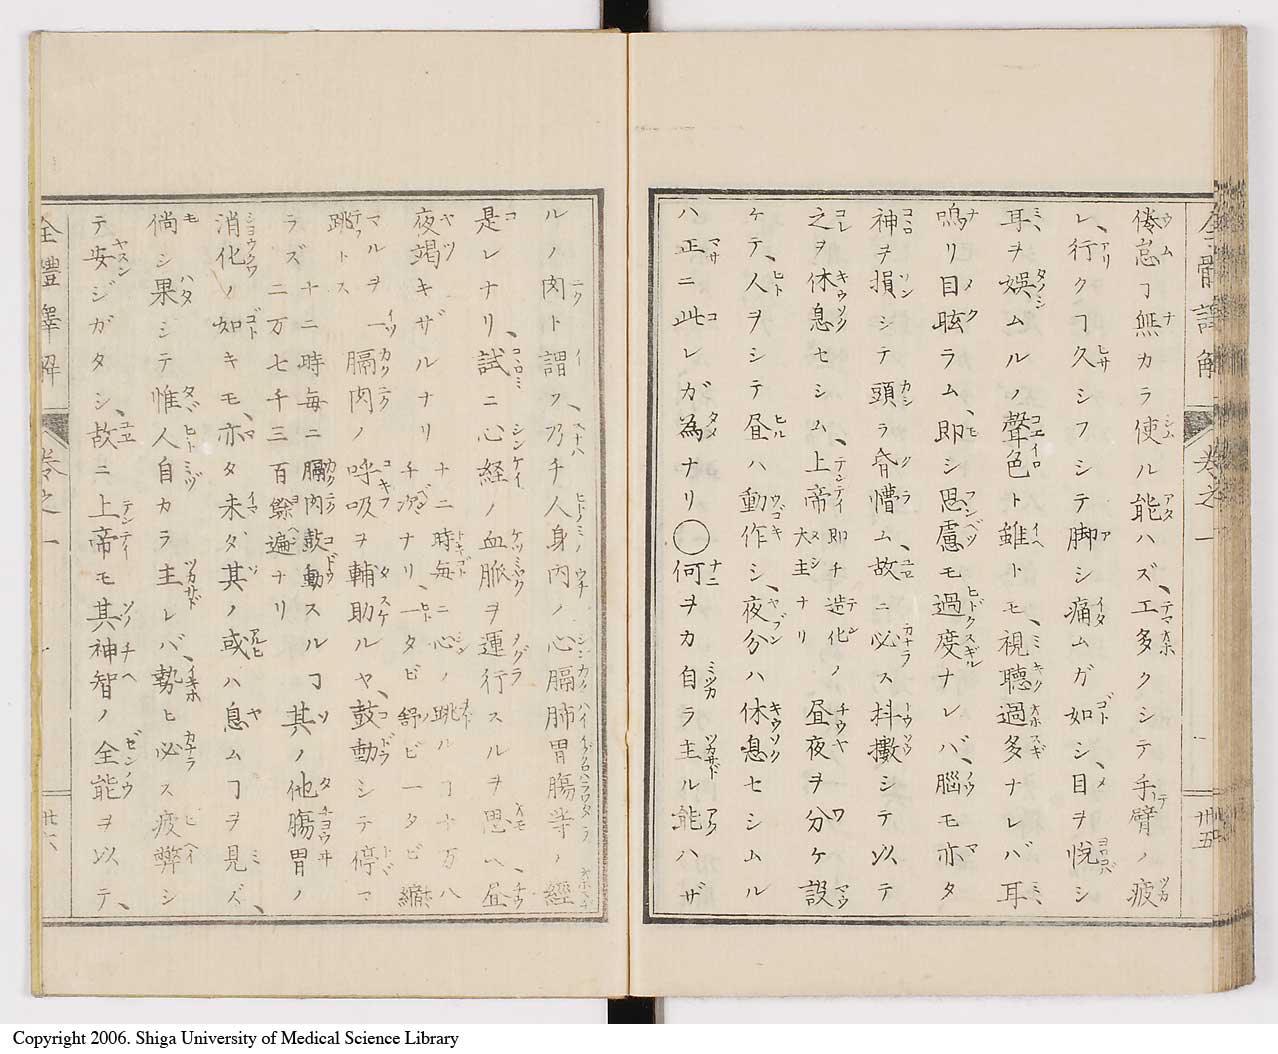 全體譯解 卷之一 卅五
倦怠ヿ無カラ使ル能ハズ、工多クシテ手臂ノ疲
レ、行クヿ久シフシテ脚シ痛ムガ如シ、目ヲ悅シ
耳ヲ娯ムルノ聲色ト雖トモ、視聽過多ナレバ耳
鳴リ目眩ラム、即シ思慮モ過度ナレバ、腦モ亦タ
神ヲ損シテ頭ラ昏懵ム、故ニ必ス抖擻シテ以テ
之ヲ休息セシム、上帝即チ造化ノ大主ナリ晝夜ヲ分ケ設
ケテ、人ヲシテ昼ハ動作シ、夜分ハ休息セシムル
ハ正ニ此レガ為ナリ〇何ヲカ自ラ主ル能ハザ
ルノ肉ト謂フ、乃チ人身內ノ心膈肺胃腸等ノ經
是レナリ、試ニ心経ノ血脈ヲ運行スルヲ思ヘ、昼
夜竭キザルナリ十二時每ニ心ノ跳ルヿ十万八千次ナリ、一タビ舒ビ一タビ縮
マルヲ一跳トス膈肉ノ呼吸ヲ輔助ルヤ、鼓動シテ停マ
ラズ十二時每ニ膈肉鼓動スルヿ二万七千三百餘遍ナリ其ノ他腸胃ノ
消化ノ如キモ、亦タ未ダ其ノ或ハ息ムヿヲ見ズ、
倘シ果シテ惟人自カラ主レバ、勢ヒ必ス疲弊シ
テ安ジガタシ、故ニ上帝モ其神智ノ全能ヲ以テ、
全體譯解 卷之一 卅六
Copyright 2006. Shiga University of Medical Science Library